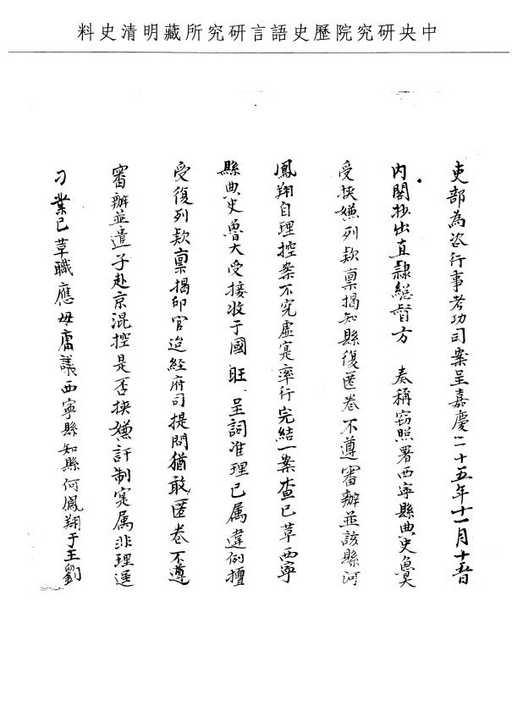 中央研究院歷史語言研究所藏明清史料
吏部為咨行事考功司案呈嘉慶二十五年十一月十五日
內閣抄出直隸總督方 奏稱竊照署西寧縣典史魯大
受挾嫌列款稟揭知縣復匿卷不遵審辦並該縣何
鳳翔自理控案不究虛實率行完結一案查已革西寧
縣典史魯大受接收于國旺呈詞准理已属違例擅
受復列款稟揭印官迨經府司提問猶敢匿卷不遵
審辦並遣子赴京混控是否挾嫌訐制寔属非理逞
刁業已革職應毋庸議西寧縣知縣何鳳翔于王劉